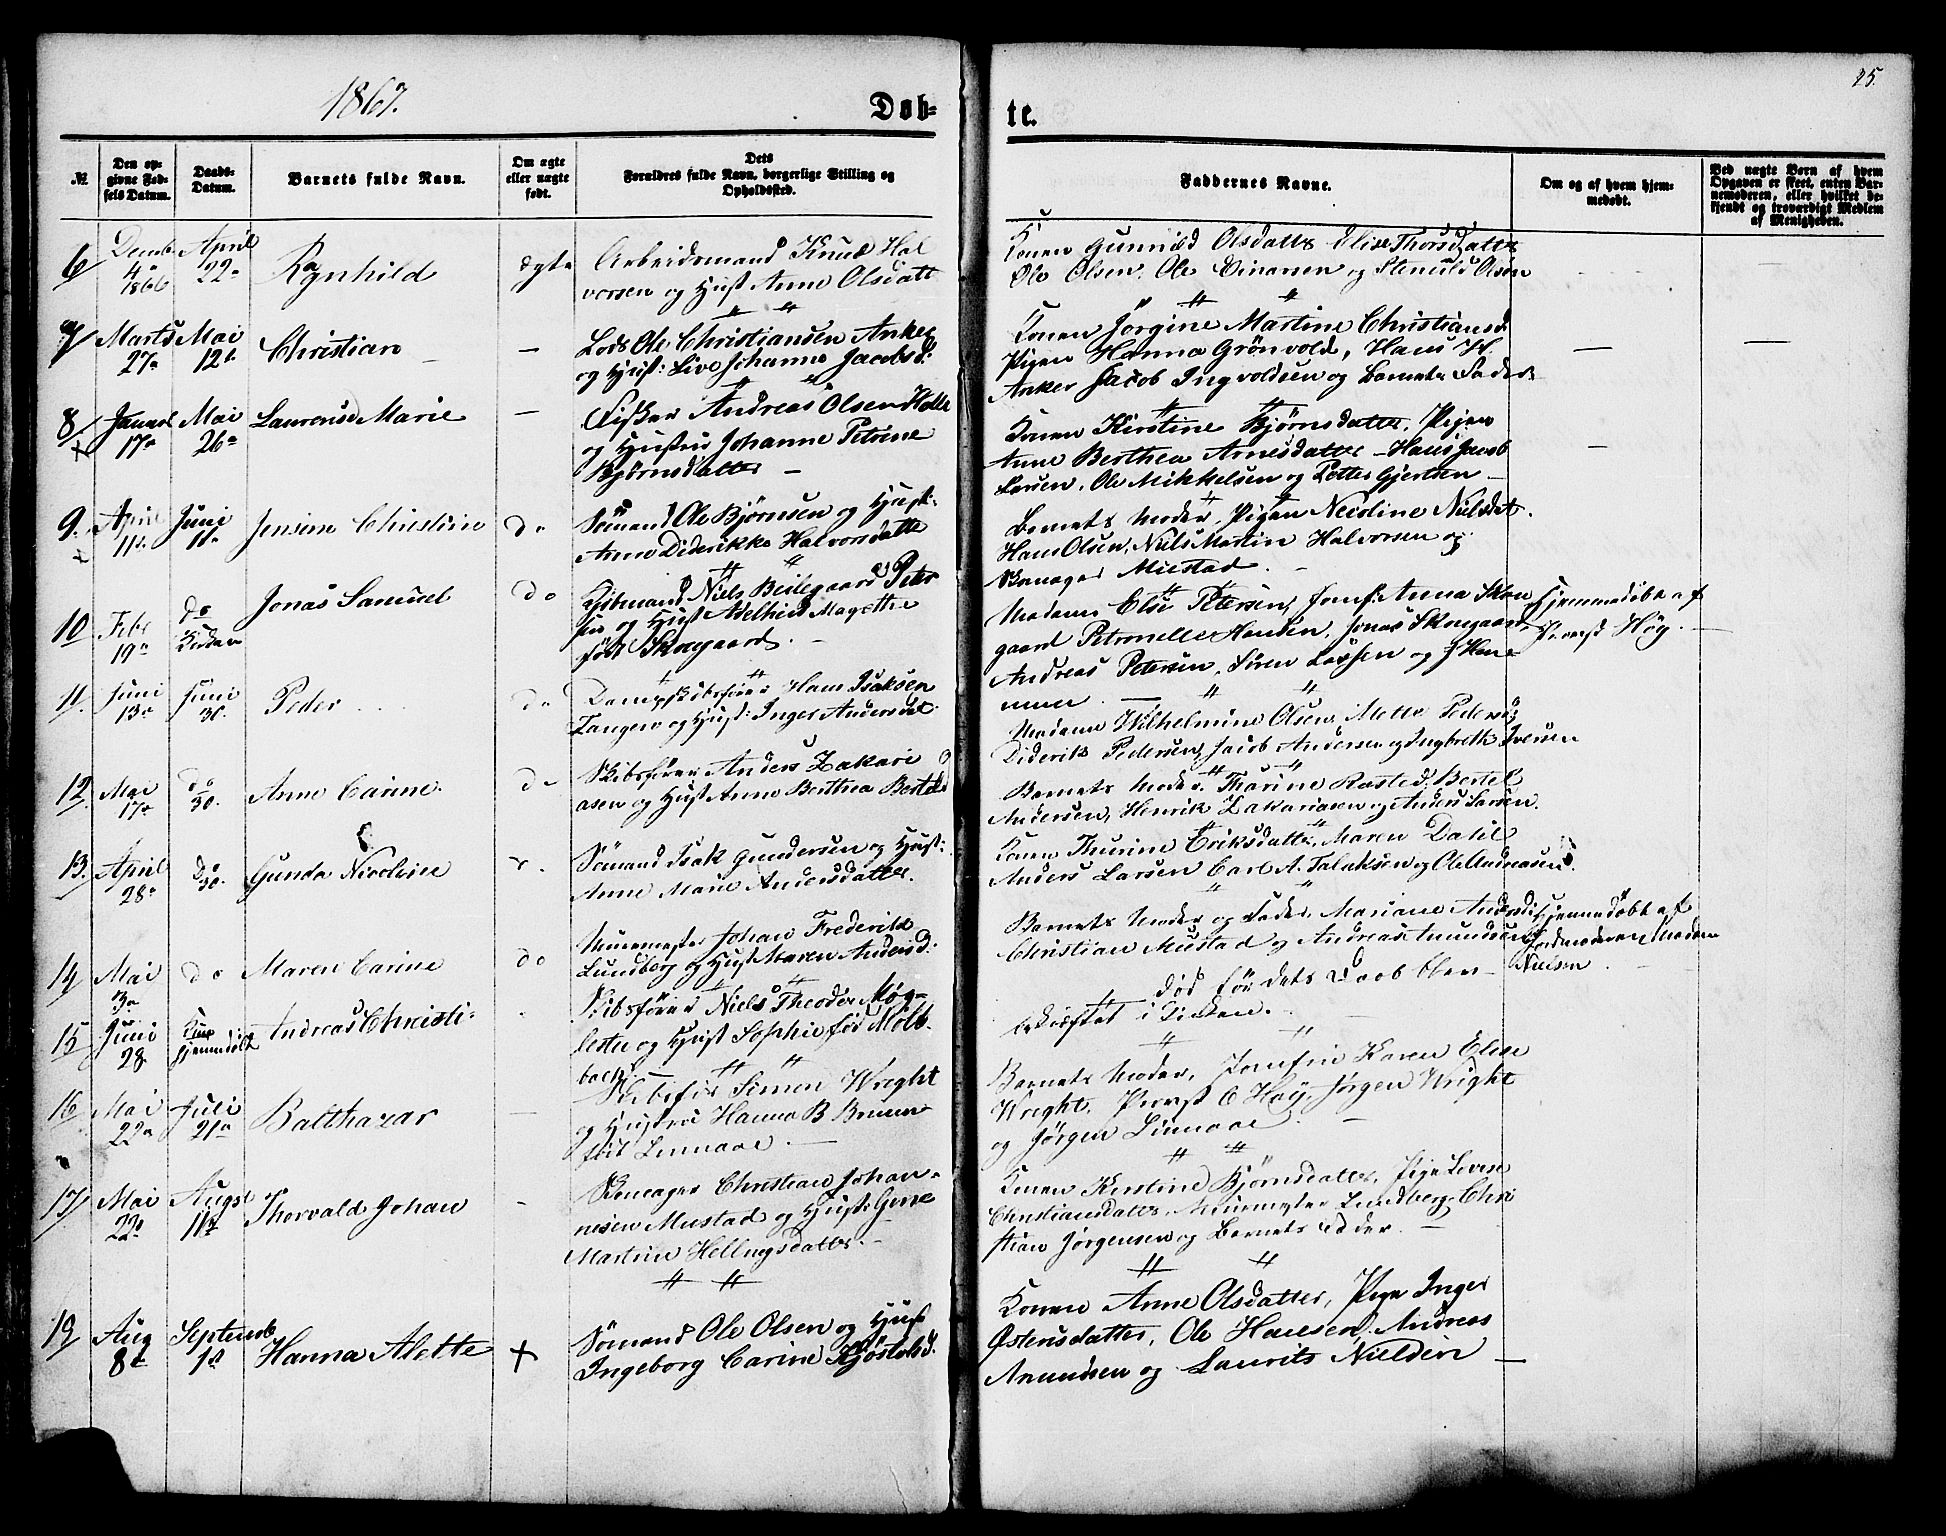 1867.
Døb-
te.
25.
№
Den op-
givne Fød-
sels Datum.
Daabs-
Datum.
Barnets fulde Navn.
Om ægte
eller uægte
født.
Dets
Forældres fulde Navn, borgerlige Stilling og
Opholdssted.
Faddernes Navne.
Om og af hvem hjem-
medøbt.
Ved uægte Børn af hvem
Opgaven er skeet, enten Bar-
nemoderen, eller hvilket be-
kjendt og troværdigt Medlem
af Menigheden.
6 Decemb 4de 1866 April 22de
Ragnhild
ægte
Arbeidsmand Knud Hal
vorsen og Hust Anne Olsdatt
Konen Gunnild Olsdatter Elise Thorsdatter
Ole Olsen, Ole Einarsen og Stenuld Olsen
7 Marts 27de Mai 12te
Christian
—
Lods Ole Christiansen Anker
og Hust: Live Johanne Jacobsd:
Konen Jørgine Martine Christiansd.
Pigen Hanna Grönvold, Hans H.
Anker Jacob Ingvoldsen og Barnets Fader
8 Januar 17de Mai 26de
Laurense Marie
—
Fisker Andreas Olsen Holte
og Hustru Johanne Petrine
Bjørnsdatter —
Konen Kirstine Bjørnsdatter, Pigen
Anne Berthea Arnesdatter — Hans Jacob
Larsen, Ole Mikkelsen og Petter Gjertsen —
9. April 11te Juni 10de
Jensine Christine
do
Sömand Ole Bjørnsen og Hust:
Anne Diderikke Halvorsdatte
Barnets Moder, Pigen Nicoline Nielsdat.
Hans Olsen, Niels Martin Halvorsen og
Skomager Mustad.
10 Febr 19de do Kirken
Jonas Samuel
do
Kjøbmand Niels Beilegaard Peter
sen og Hust Adelheid Magrethe
født Skougaard.
Madame Else Petersen, Jomf: Anna Skou
gaard Petronelle Hansen, Jonas Skougaard
Andreas Petersen, Søren Lassen og J Ham
mer —
Hjemmedøbt af
Provst Høg. —
11. Juni 13de Juni 30.
Peder
do
Dampskibsfører Hans Isaksen
Tangen og Hust: Inger Andersdat
Madame Wilhelmine Olsen, Mette Pedersd
Diderik Pedersen, Jacob Andersen og Ingbreth Iversen
12 Mai 17de do 30.
Anne Carine.
do
Skibsfører Anders Zakari
asen og Hust Anne Berthea Bertelsd
Barnets Moder, Tharine Rasted. Bertel
Andersen, Henrik Zakariasen og Anders Larsen.
13. April 28de do 30.
Gunda Nicoline
Sömand Isak Gundersen og Hust:
Anne Marie Andersdatter.
Konen Thurine Eriksdatter, Maren Dahl
Anders Larsen Carl A. Falaksen og Ole Andreasen.
14 Mai 3de do
Maren Carine
do
Murmester Johan Frederik
Lundberg og Hust Maren Andersd:
Barnets Moder og Fader, Mariane Andersd
Christian Mustad og Andreas Amundsen
Hjemmedøbt af
Jordmoderen Madam
Nielsen
15 Juni 28 Kun hjemmedøbt
Andreas Christi-
Skibsfører Niels Theodor Møg-
lestu og Hust Sophie fød Moll-
bach.
død før dets Daab blev
bekræftet i Kirken.
16 Mai 22de Juli 21de
Balthazar
—
Skibsfør Simon Wright
og Hustru Hanna B Bruun
født Linnaae. —
Barnets Moder, Jomfru Karen Elise
Wright, Provst C Høy, Jørgen Wright
og Jørgen Linnaae.
17 Mai 22de Augst 11te
Thorvald Johan
—
Skomager Christian Johan-
nesen Mustad og Hust: Gune
Martine Hellugsdatter.
Konen Kirstine Bjørnsdatter, Pige Lovise
Christiansdatter, Muurmester Lundberg, Chri
stian Jørgensen og Barnets Fader. —
19 Aug 8de Septemb 1ste
Hanna Alette
+
Sömand Ole Olsen og Hust
Ingeborg Carine Kjøstolsd.
Konen Anne Olsdatter, Pige Inger
Østensdatter, Ole Hansen, Andreas
Amundsen og Laurits Nielsen —